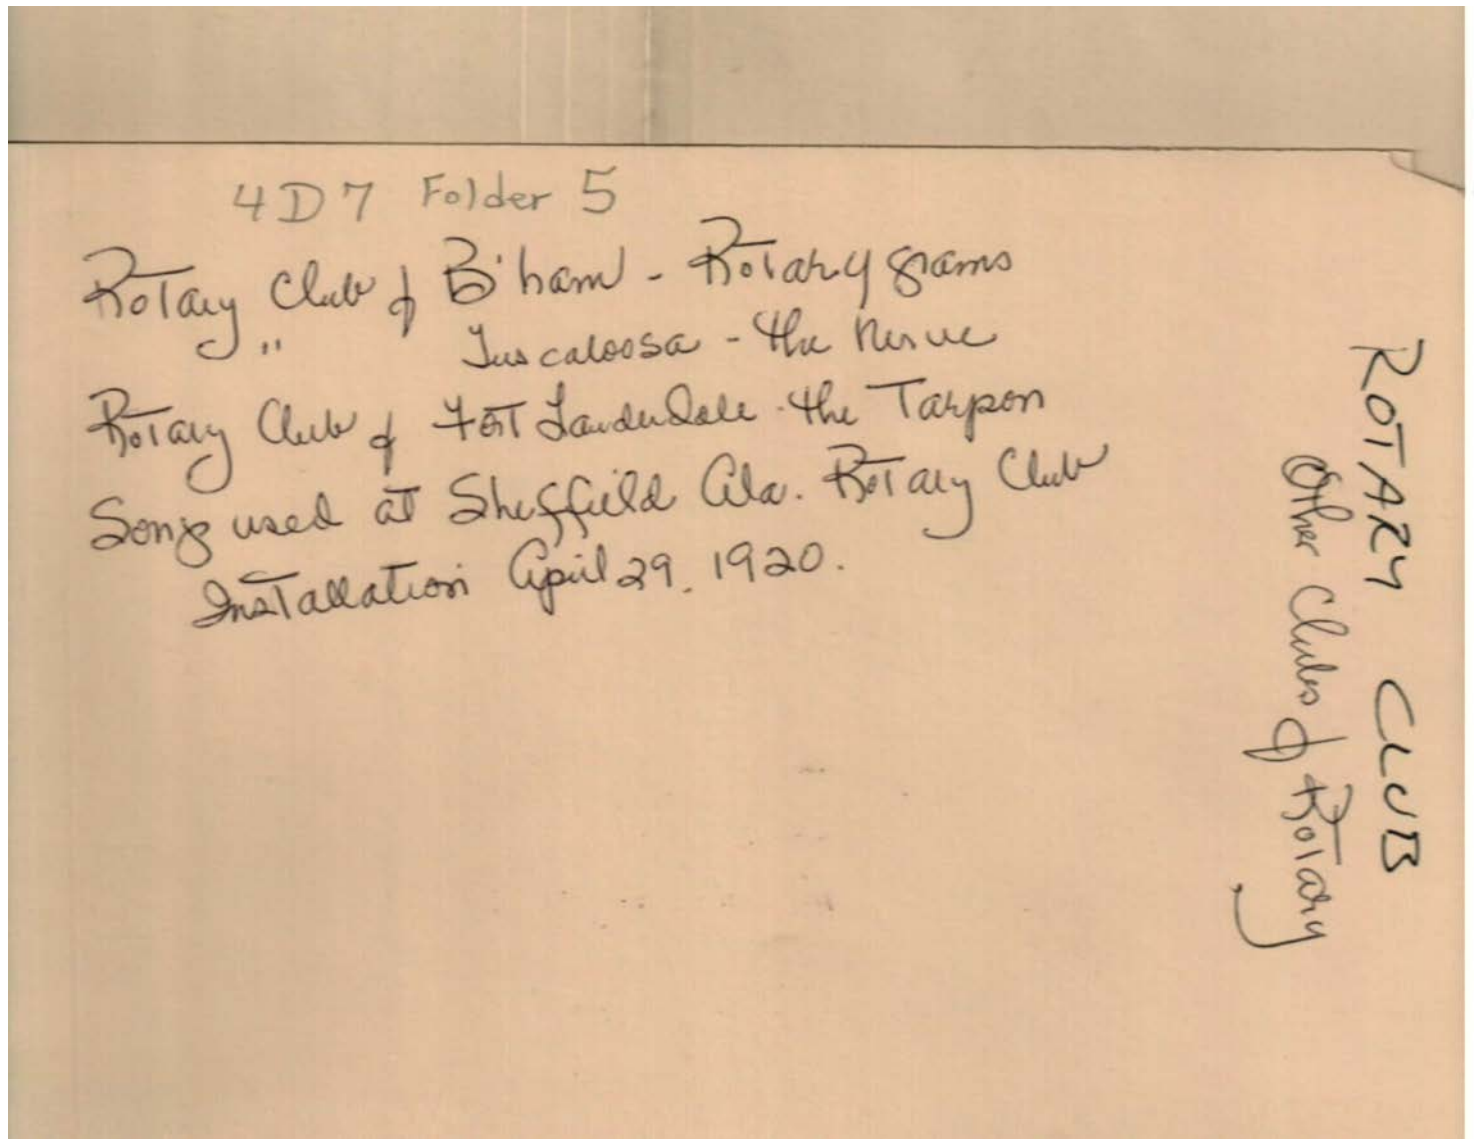 4D7 Folder 5
Rotary Club of B'ham - Rotary grams
" Tuscaloosa - the Nerve
Rotary Club of Fort Lauderdale - the Tarpon
Songs used at Sheffield Ala. Rotary Club
Installation April 29, 1920.
ROTARY CLUB
Other Clubs of Rotary